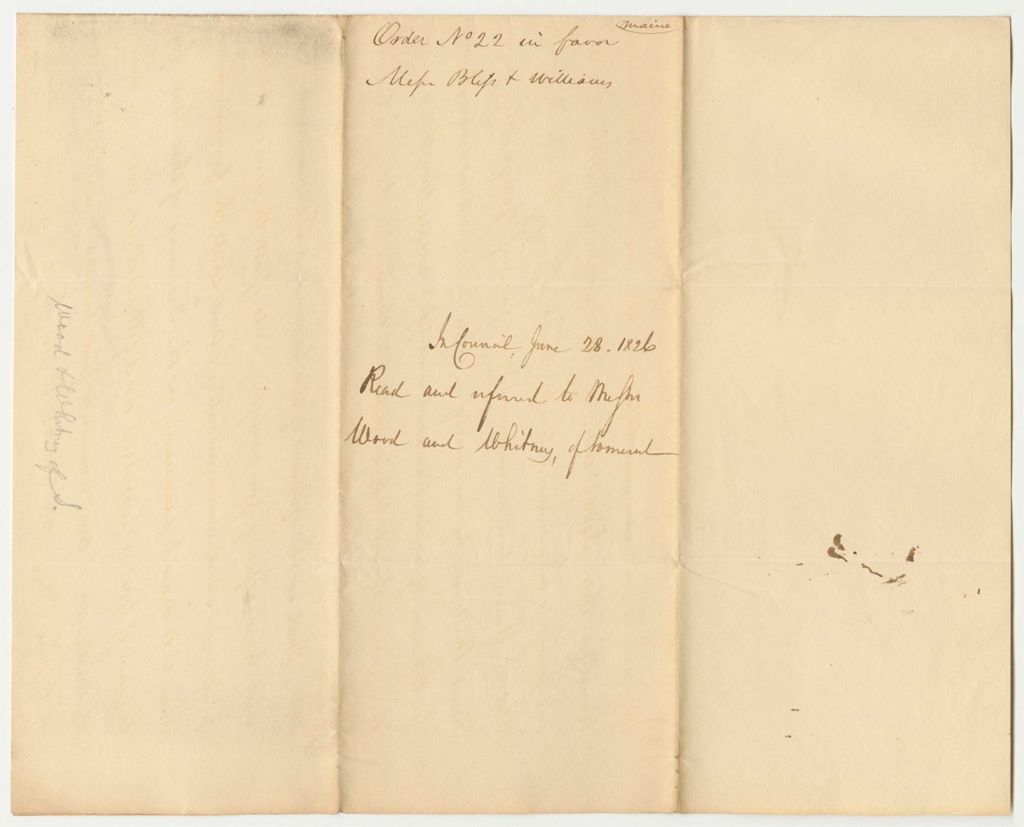 Maine
Order No 22 in favor
Messr Bliss & Williams
In Council, June 28. 1826
Read and referred to Messrs
Wood and Whitney, of Somerset
Wood & Whitney of S.